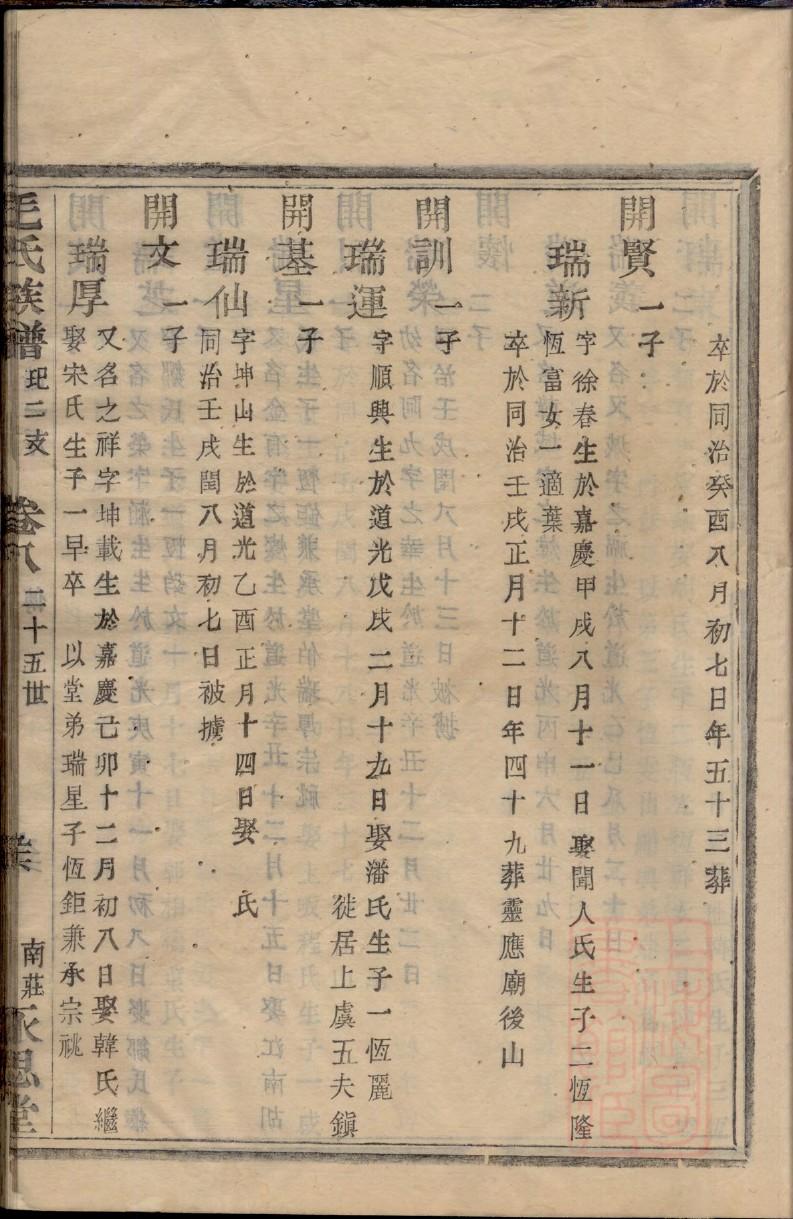 卒於同治癸酉八月初七日年五十三葬
開賢一子
瑞新字徐春生於嘉慶甲戌八月十一日娶聞人氏生子二恆隆
恆富女一適葉
卒於同治壬戌正月十二日年四十九葬靈應廟後山
開訓一子
瑞運字順興生於道光戊戌二月十九日娶潘氏生子一恆麗
徙居上虞五夫鎭
開基一子
瑞仙字坤山生於道光乙酉正月十四日娶 氏
同治壬戌閏八月初七日被擄
開文一子
瑞厚又名之祥字坤載生於嘉慶己卯十二月初八日娶韓氏繼
娶宋氏生子一早卒 以堂弟瑞星子恆鉅兼承宗祧
毛氏族譜 玘二支 卷八 二十五世 南莊永思堂